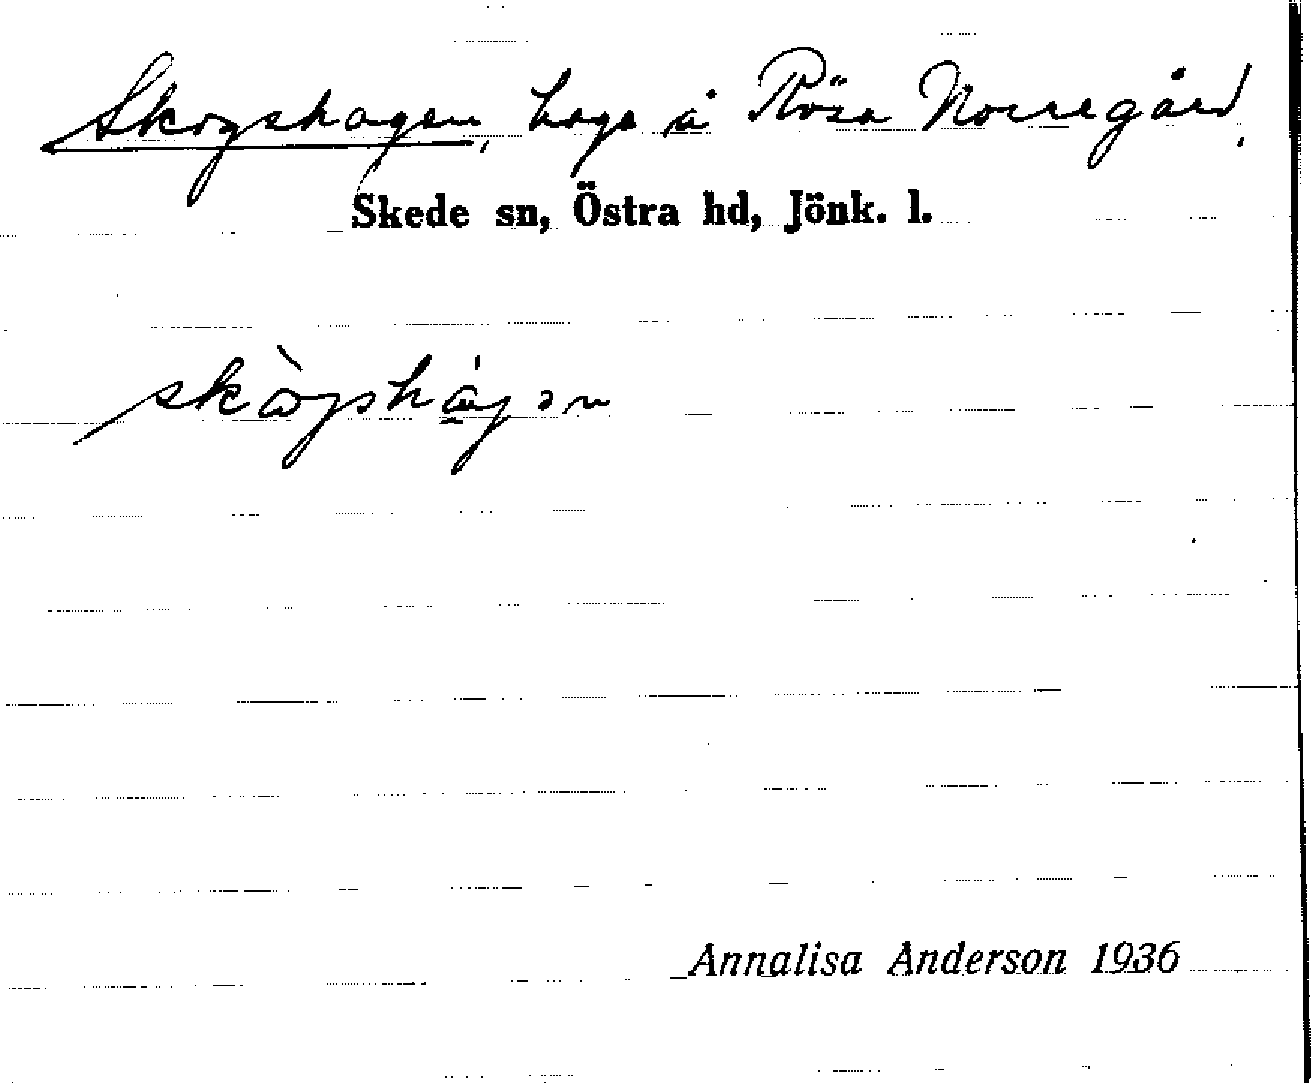 Skogshagen, hage å Rösa Norregård,
Skede sn, Östra hd, Jönk. l.
skògshágən
Annalisa Anderson 1936